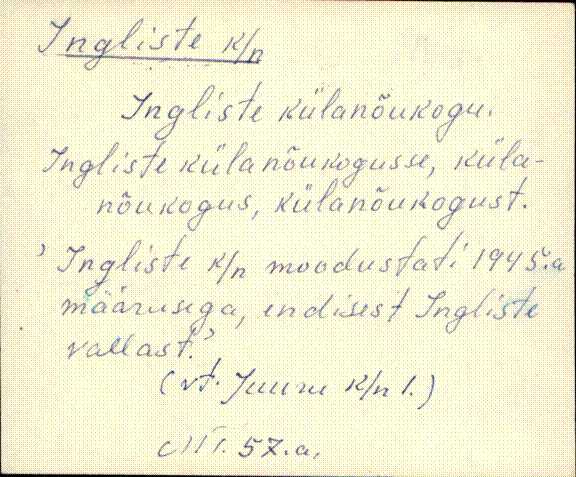 Ingliste k/n
Ingliste külanõukogu.
Ingliste külanõukogusse, küla-
nõukogus, külanõukogust.
'Ingliste k/n moodustati 1945.a
määrusega, endisest Ingliste
vallast.'
(vt. Juuru k/n 1.)
57.a.